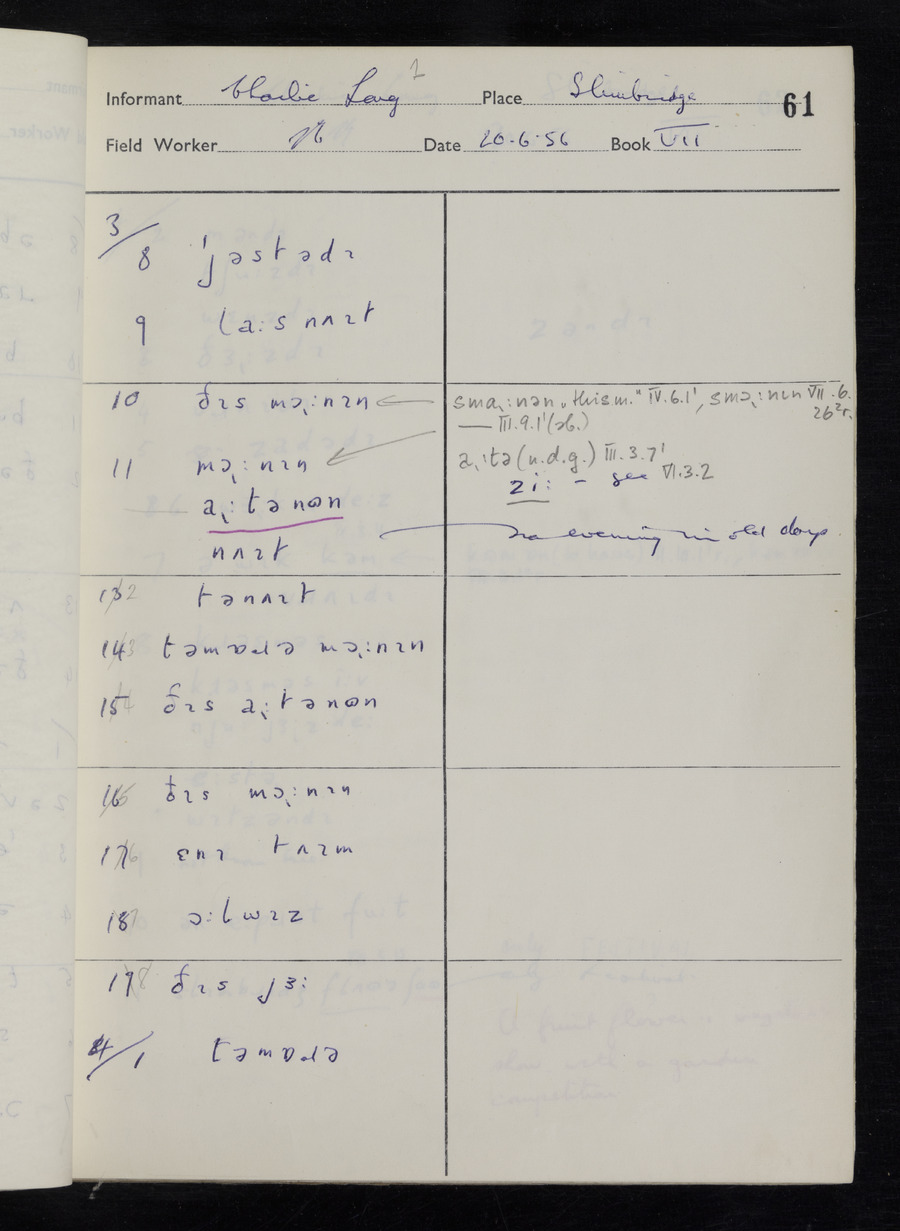 Informant Charlie Long 1 Place Slimbridge 61
Field Worker Date 20.6.56 Book VII
3/8 ˈjəstədɪ
9 laːs nʌɪt
10 ðɪs mɔ̨ːnɪn
sma̜ːnən „this m." IV.6.1', smɔ̨ːnɪn VII.6.
26²r.
— III.9.1'(ab.)
11 mɔ̨ːnɪn
a̜ːtə (n.d.g.) III.3.7'
ziː - see VI.3.2
a̜ːtənʊn
nʌɪt
no evening in old days.
12 tənʌɪt
13 təmɒɹə mɔ̨ːnɪn
14 ðɪs a̜ːtənʊn
15 ðɪs mɔ̨ːnɪn
16 ɛnɪ tʌɪm
17 ɔːlwɪz
18 ðɪs jɜː
4/1 təmɒɹə